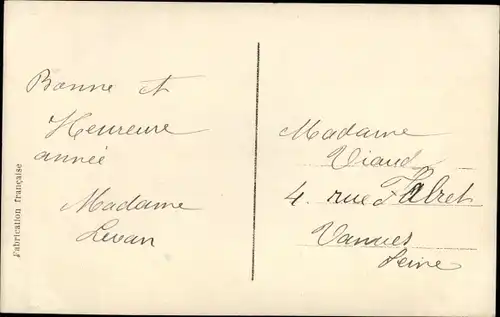 Bonne et
Heureuse
année
Madame
Levan
Madame
Viaud
4. rue Falret
Vanves
Seine
Fabrication française